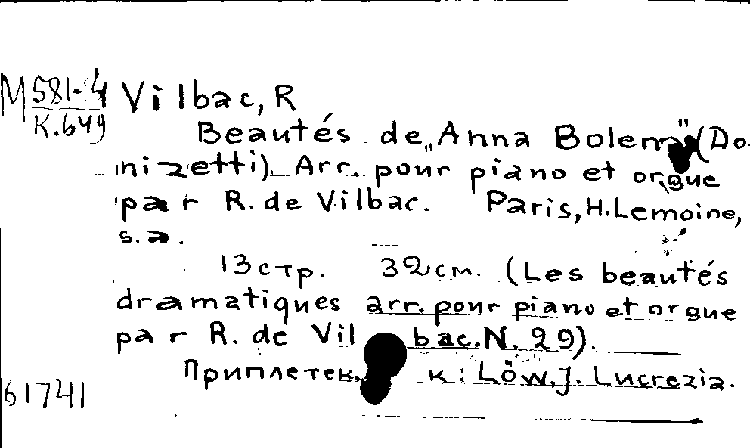 М 581-4 Vilbac, R
К.649
Beautés de „Anna Bolena" (Do-
nizetti). Arr. pour piano et orgue
par R. de Vilbac. Paris, H. Lemoine,
s.a.
13 стр. 32 см. (Les beautés
dramatiques arr. pour piano et orgue
par R. de Vilbac. N. 29).
Приплетен. к: Löw, J. Lucrezia.
61741